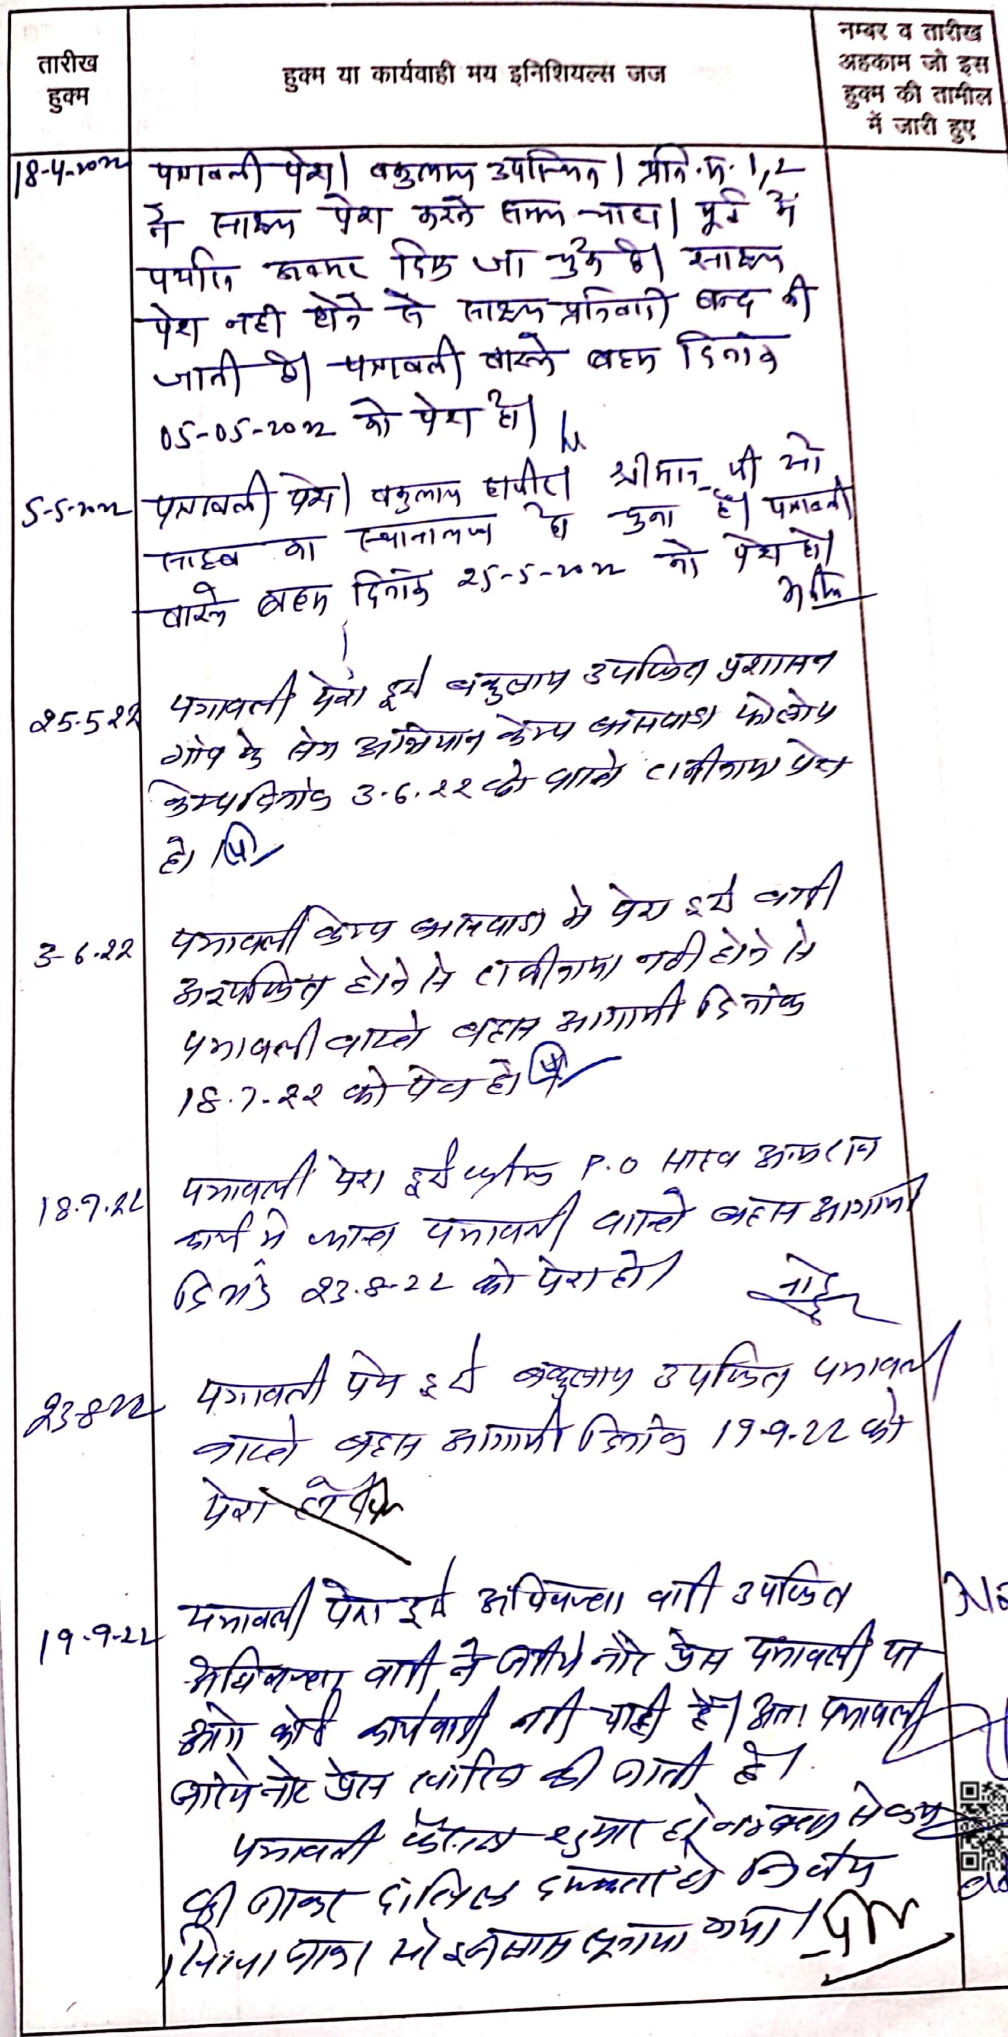 तारीख
हुक्म
हुक्म या कार्यवाही मय इनिशियल्स जज
नम्बर व तारीख
अहकाम जो इस
हुक्म की तामील
में जारी हुए
18-4-2022 पत्रावली पेश। वकुलाय उपस्थित। प्रति. क्र. 1,2
ने साक्ष्य पेश करने समय चाहा। पूर्व में
पर्याप्त अवसर दिए जा चुके है। साक्ष्य
पेश नही होने से साक्ष्य प्रतिवादी बन्द की
जाती है। पत्रावली वास्ते बहस दिनांक
05-05-2022 को पेश हो।
5-5-2022 पत्रावली पेश। वकुलाय हाजीर। श्रीमान् पी ओ
साहब का स्थानान्तरण हो चुका है। पत्रावली
वास्ते बहस दिनांक 25-5-2022 को पेश हो।
25.5.22 पत्रावली पेश हुई वकुलाय उपस्थित प्रशासन
गांव के संग अभियान केम्प फोलोप
केम्प दिनांक 3.6.22 को वास्ते राजीनामा पेश
हो।
3-6.22 पत्रावली केम्प में पेश हुई वादी
अनुपस्थित होने से राजीनामा नही होने से
पत्रावली वास्ते बहस आगामी दिनांक
18.7.22 को पेश हो।
18.7.22 पत्रावली पेश हुई P.O साहब अन्य राज
कार्य में पत्रावली वास्ते बहस आगामी
दिनांक 23.8.22 को पेश हो।
23-8-22 पत्रावली पेश हुई वकुलाय उपस्थित पत्रावली
वास्ते बहस आगामी दिनांक 19.9.22 को
पेश हो
19.9.22 पत्रावली पेश हुई अधिवक्ता वादी उपस्थित
अधिवक्ता वादी ने जरीये नोट प्रेस पत्रावली पर
आगे कोई कार्यवाही नही चाही है। अतः पत्रावली
जरीये नोट प्रेस खारिज की जाती है।
पत्रावली फैसल शुमार हो नम्बर से कम
की जाकर दाखिल दफ्तर हो निर्णय
लिखा जाकर सरे इजलास सुनाया गया।